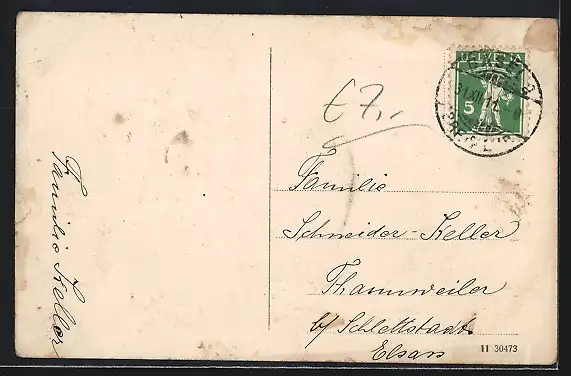 Familie Keller
£7,-
HELVETIA
5
Familie
Schneider-Keller
Thannweiler
b/ Schlettstadt
Elsass
11 30473